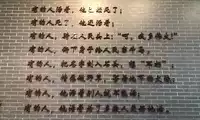 有的人活着，他已经死了；
有的人死了，他还活着。
有的人，骑在人民头上：“呵，我多伟大！”
有的人，俯下身子给人民当牛马。
有的人，把名字刻入石头，想“不朽”；
有的人，情愿作野草，等着地下的火烧。
有的人，他活着别人就不能活；
有的人，他活着为了多数人更好地活。